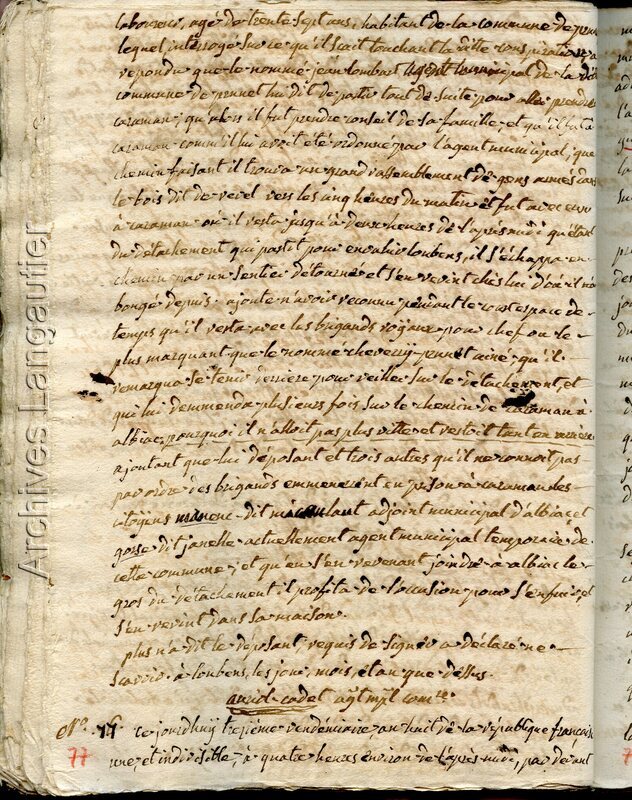 laboureur, agé de trente sept ans, habitant de la commune de
lequel, interrogé sur ce qu'il scait touchant la dite conspiration a
repondu que le nommé jean lombart agent municipal de la dite
commune de pennet lui dit de partir tout de suite pour aller prendre
caraman; qu'alors il fut prendre conseil de sa famille, et qu'il fut a
caraman comm'il lui avoit été ordonné par l'agent municipal, que
chemin faisant il trouva un grand rassemblement de gens armés dans
le bois dit de vevel vers les cinq heures du matin et fut avec eux
à caraman où il resta jusqu'à deux heures de l'après midi qu'étant
du détachement qui partit pour envahir loubens, il s'échappa en
chemin par un sentier détourné et s'en revint chés lui d'où il n'a
bougé depuis. ajoute n'avoir reconnu pendant le court espace de
temps qu'il resta avec les brigands royaux pour chef ou le
plus marquant que le nommé chevery-pennet ainé qu'il
remarqua se tenir derriere pour veiller sur le détachement, et
qui lui demmenda plusieurs fois sur le chemin de caraman à
albiac, pourquoi il n'alloit pas plus vitte et restoit tant en arriere
ajoutant que lui déposant et trois autres qu'il ne connoit pas
par ordre des brigands emmenerent en prison à caraman les
citoyens manenc dit adjoint municipal d'albiac, et
gorse dit janelle actuellement agent municipal temporaire de
cette commune; et qu'en s'en revenant joindre à albiac le
gros du détachement il profita de l'occasion pour s'enfuir, et
s'en revint dans sa maison.
plus n'a dit le déposant; requis de signer a déclaré ne
scavoir, à loubens, les jour, mois, et an que dessus.
auriol-cadet agt mpl comre.
No. 77
77
ce jourdhuy treizième vendémiaire an huit de la république française
une, et indivisible, à quatre heures environ de l'après midi, par devant
Archives Langautier